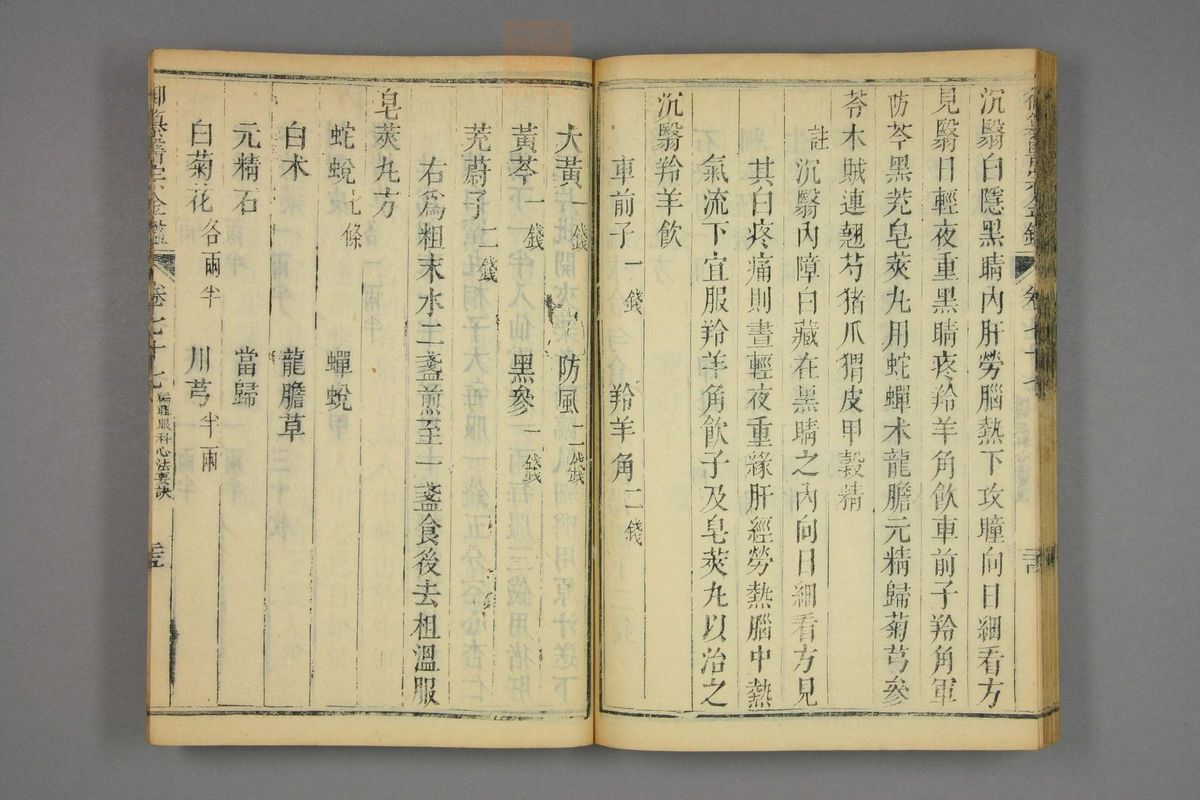 沉翳白隱黑睛內肝勞腦熱下攻瞳向日細看方
見翳日輕夜重黑睛疼羚羊角飲車前子羚角軍
防芩黑茺皂莢丸用蛇蟬朮龍膽元精歸菊芎參
苓木賊連翹芍猪爪猬皮甲穀精
註 沉翳內障白藏在黑睛之內向日細看方見
其白疼痛則晝輕夜重緣肝經勞熱腦中熱
氣流下宜服羚羊角飲子及皂莢丸以治之
沉翳羚羊飲
車前子一錢 羚羊角二錢
大黃一錢 防風二錢
黃芩一錢 黑參一錢
茺蔚子二錢
右為粗末水二盞煎至一盞食後去柤溫服
皂莢丸方
蛇蛻七條 蟬蛻
白朮 龍膽草
元精石 當歸
白菊花各兩半 川芎半兩
御纂醫宗金鑑 卷七十七 編輯眼科心法要訣